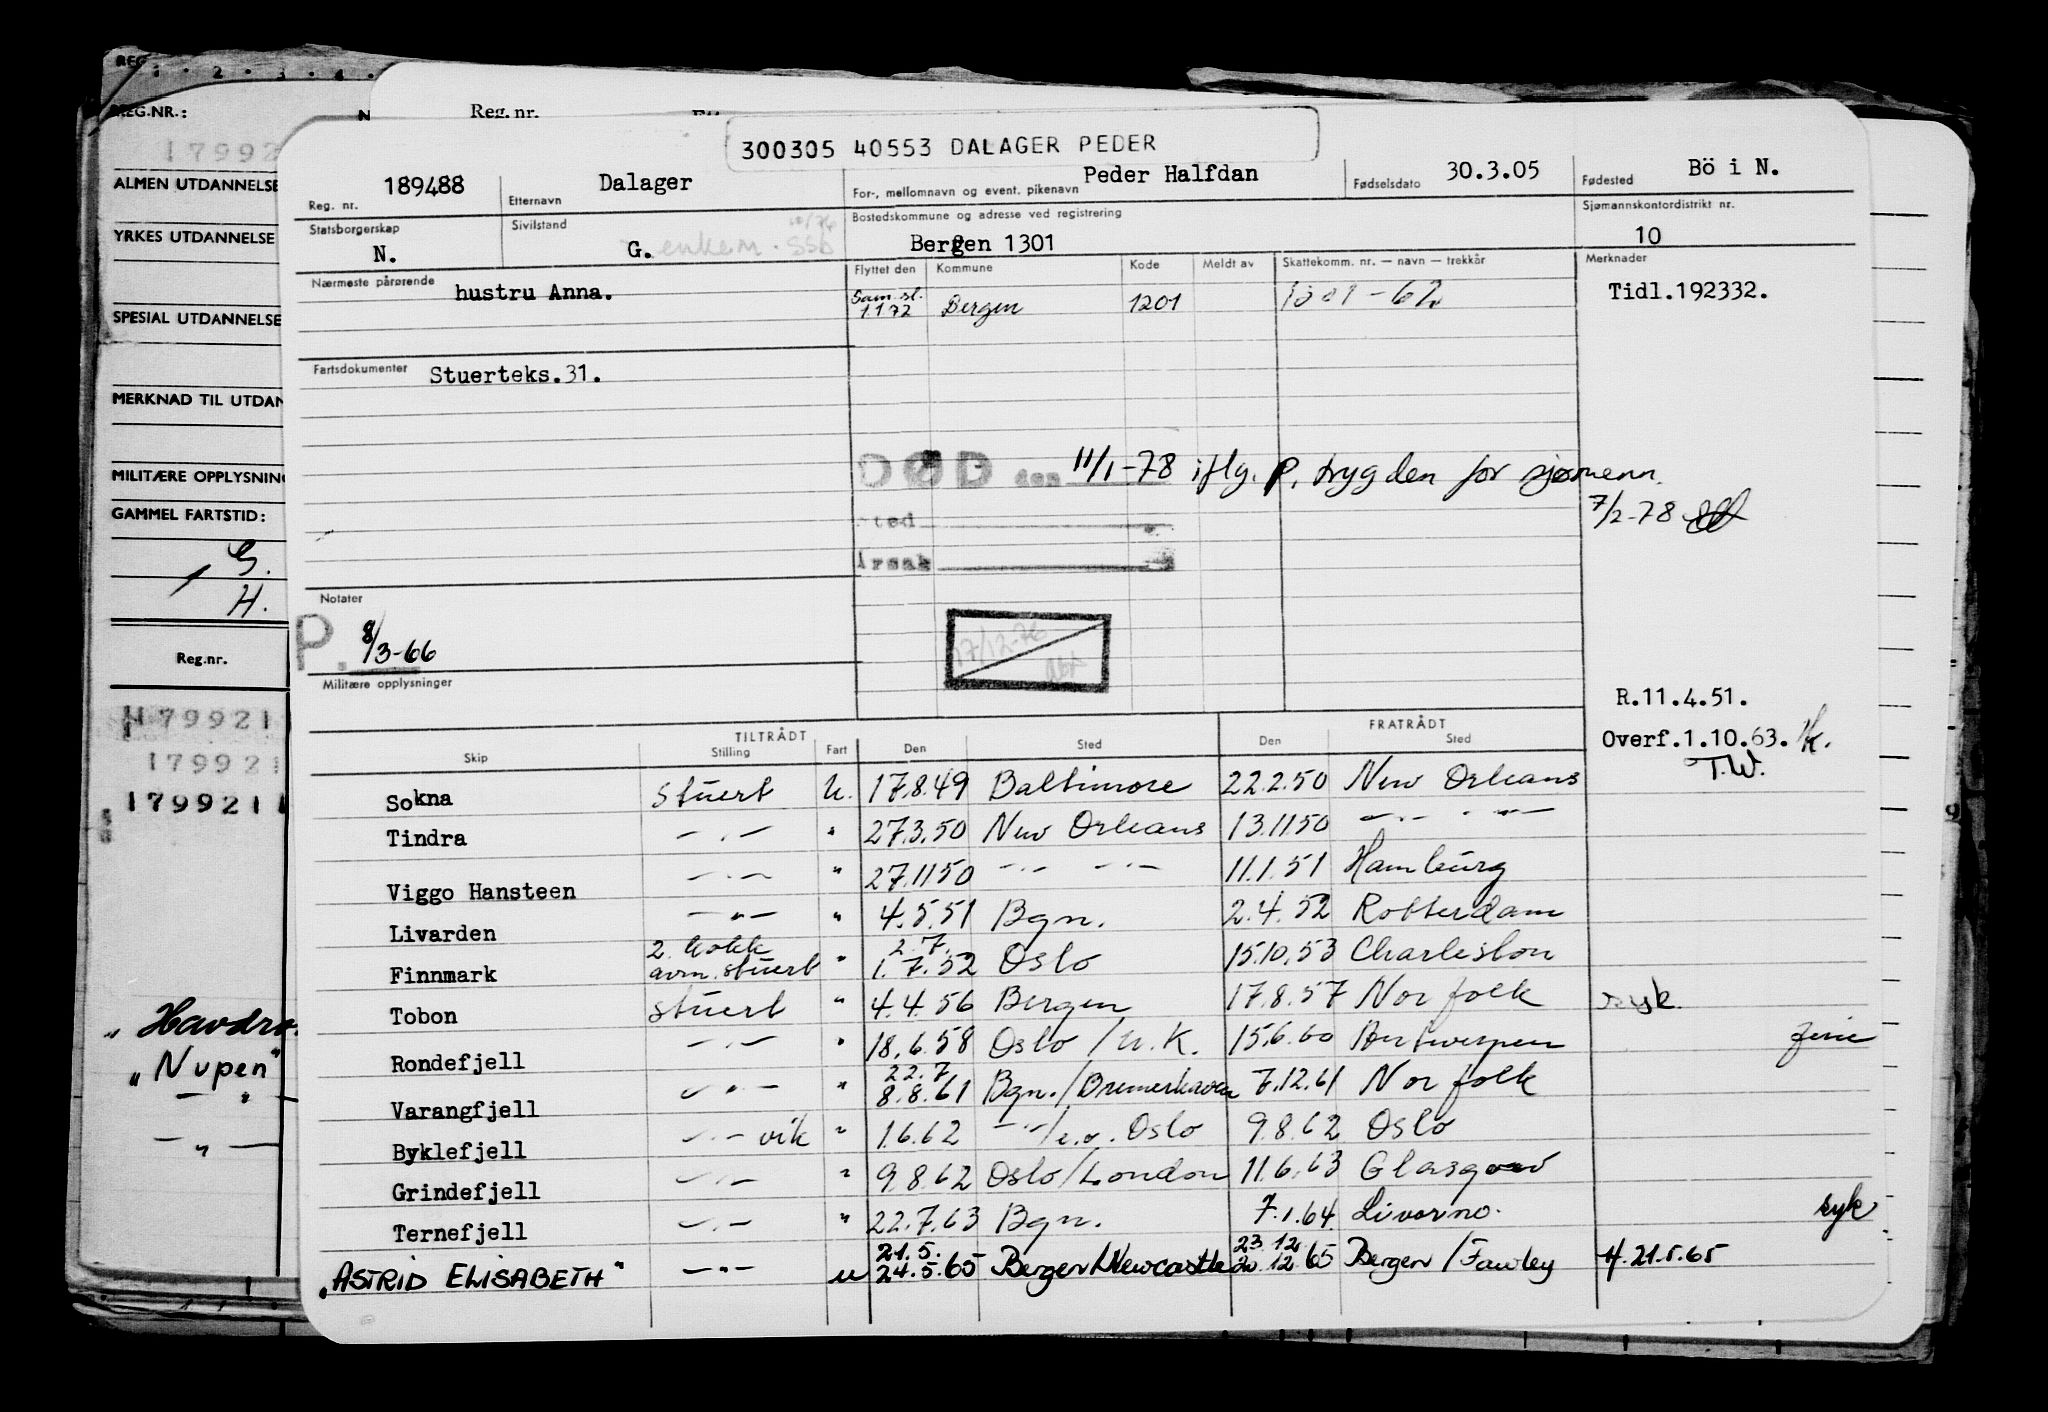 REG.
1 . 2 . 3 . 4 .
REG.NR.:
N
Reg. nr.
17992
ALMEN UTDANNELSE
YRKES UTDANNELSE
SPESIAL UTDANNELSE
MERKNAD TIL UTDAN
MILITÆRE OPPLYSNIN
GAMMEL FARTSTID:
G.
H.
Reg.nr.
1799211
179921
1799211
"Havdro
"Nupen"
— " —
— " —
300305 40553 DALAGER PEDER
Reg. nr. 189488
Etternavn Dalager
For-, mellomnavn og event. pikenavn Peder Halfdan
Fødselsdato 30.3.05
Fødested Bö i N.
Statsborgerskap N.
Sivilstand G. enkem.
Bostedskommune og adresse ved registrering Bergen 1301
Sjømannskontordistrikt nr. 10
Nærmeste pårørende hustru Anna.
Flyttet den Kommune Kode Meldt av Skattekomm. nr. — navn — trekkår
Merknader Tidl.192332.
Sam.sl. 1.1 72 Bergen 1201 1301 - 62
Fartsdokumenter Stuerteks.31.
DØD den 11/1-78 iflg. P. trygden for sjømenn.
7/2-78
Sted
Årsak
Notater
P. 8/3-66
17/12-76
Militære opplysninger
R.11.4.51.
Overf.1.10.63.
T.W.
TILTRÅDT FRATRÅDT
Skip Stilling Fart Den Sted Den Sted
Sokna Stuert U. 17.8.49 Baltimore 22.2.50 New Orleans
Tindra —"— " 27.3.50 New Orleans 13.11.50 —"— —"—
Viggo Hansteen —"— " 27.11.50 —"— —"— 11.1.51 Hamburg
Livarden —"— " 4.5.51 Bgn. 2.4.52 Rotterdam
Finnmark 2. kokk avm. stuert " 2.7. 1.7.52 Oslo 15.10.53 Charleston
Tobon stuert " 4.4.56 Bergen 17.8.57 Norfolk syk.
Rondefjell —"— " 18.6.58 Oslo / U.K. 15.6.60 Antwerpen ferie
Varangfjell —"— " 22.7 8.8.61 Bgn./Bremerhaven 7.12.61 Norfolk
Byklefjell —"— vik " 1.6.62 —"—/e.o. Oslo 9.8.62 Oslo
Grindefjell —"— " 9.8.62 Oslo/London 11.6.63 Glasgow
Ternefjell —"— " 22.7.63 Bgn. 7.1.64 Livorno. syk
"ASTRID ELISABETH" —"— u 21.5. 24.5.65 Bergen/Newcastle 23.12 20.12.65 Bergen/Fawley H. 21.5.65